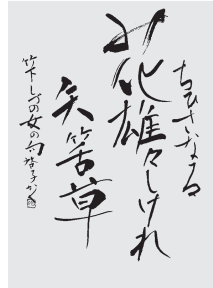 ちひさなる
花雄々しけれ
矢筈草
竹下しづの女の句 かく